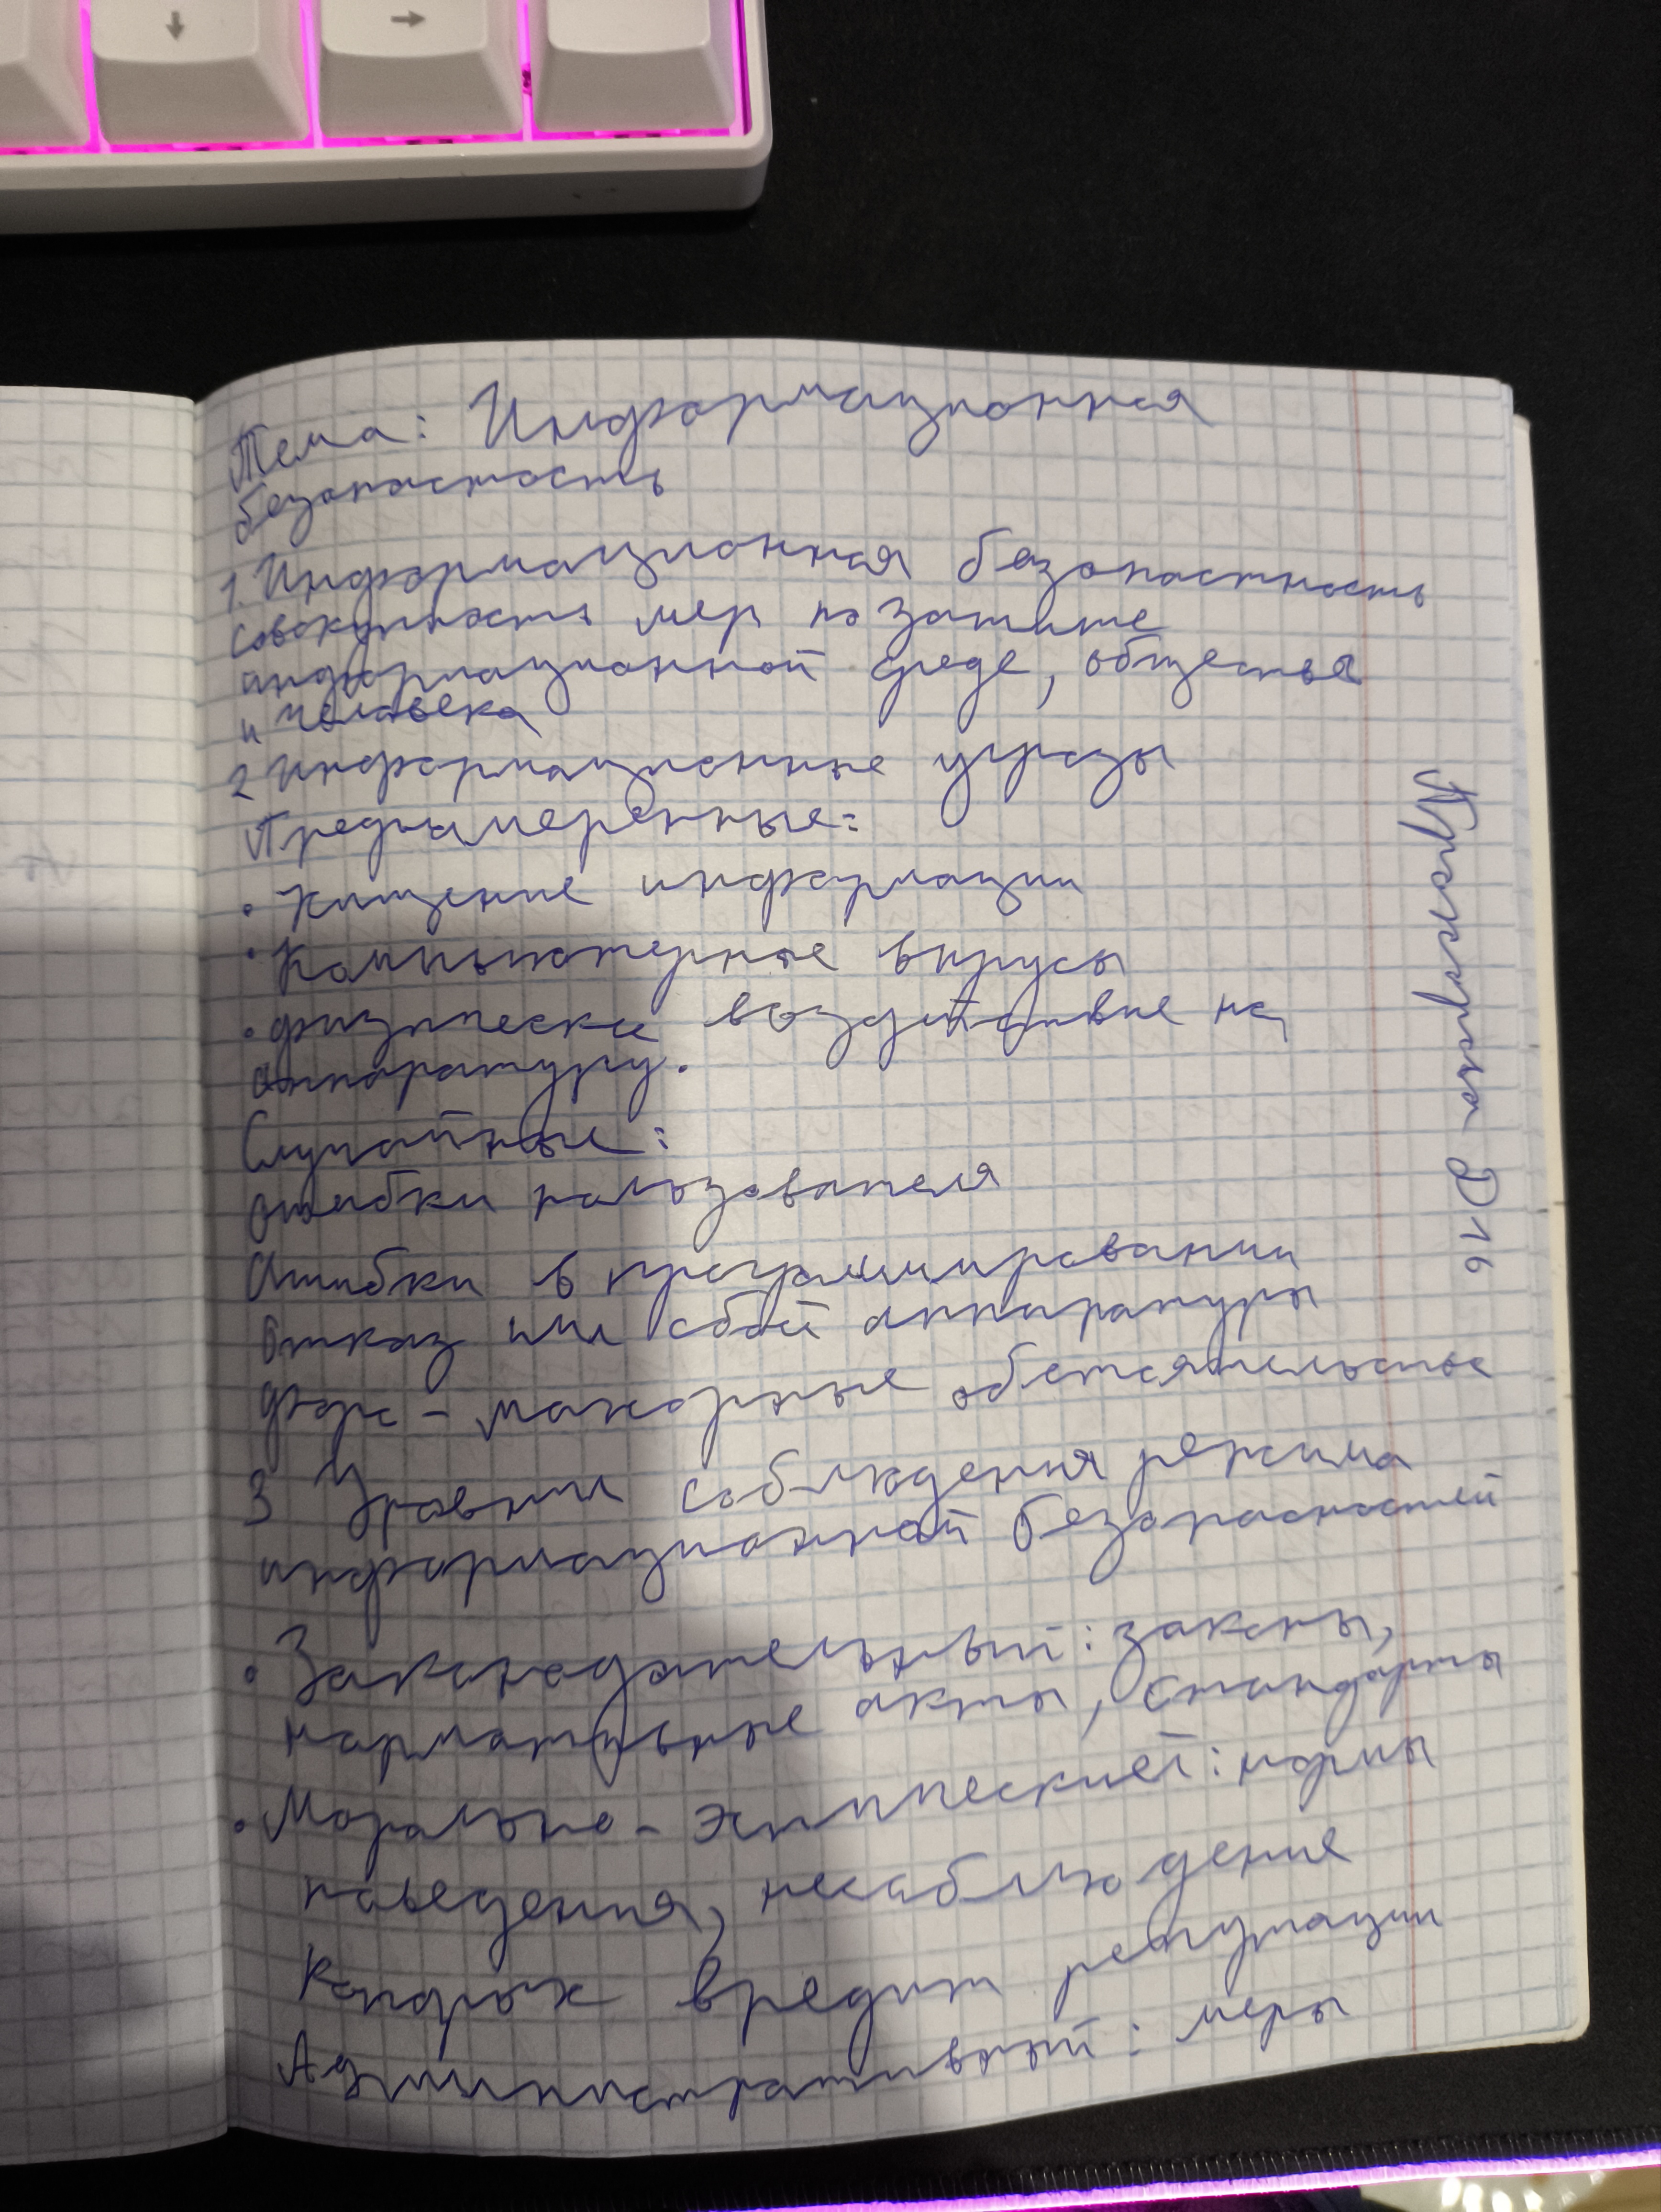 Тема: Информационная
безопастность
1. Информационная безопастность
совокупность мер по защите
информационной среде, общества
и человека
2 Информационные угрозы
Преднамеренные:
• Хищение информации
• Компьютерные вирусы
• физически воздействие на
аппаратуру.
Случайные:
ошибки пользователя
Ошибки в программировании
Отказ или сбой аппаратуры
форс-мажорные обстоятельства
3 Уровни соблюдения режима
информационной безопасностей
• Законодательный: законы,
нармативные акты, стандарты
• Морально-этический: нормы
поведения, несоблюдение
которых вредит репутации
Административный: меры
D16